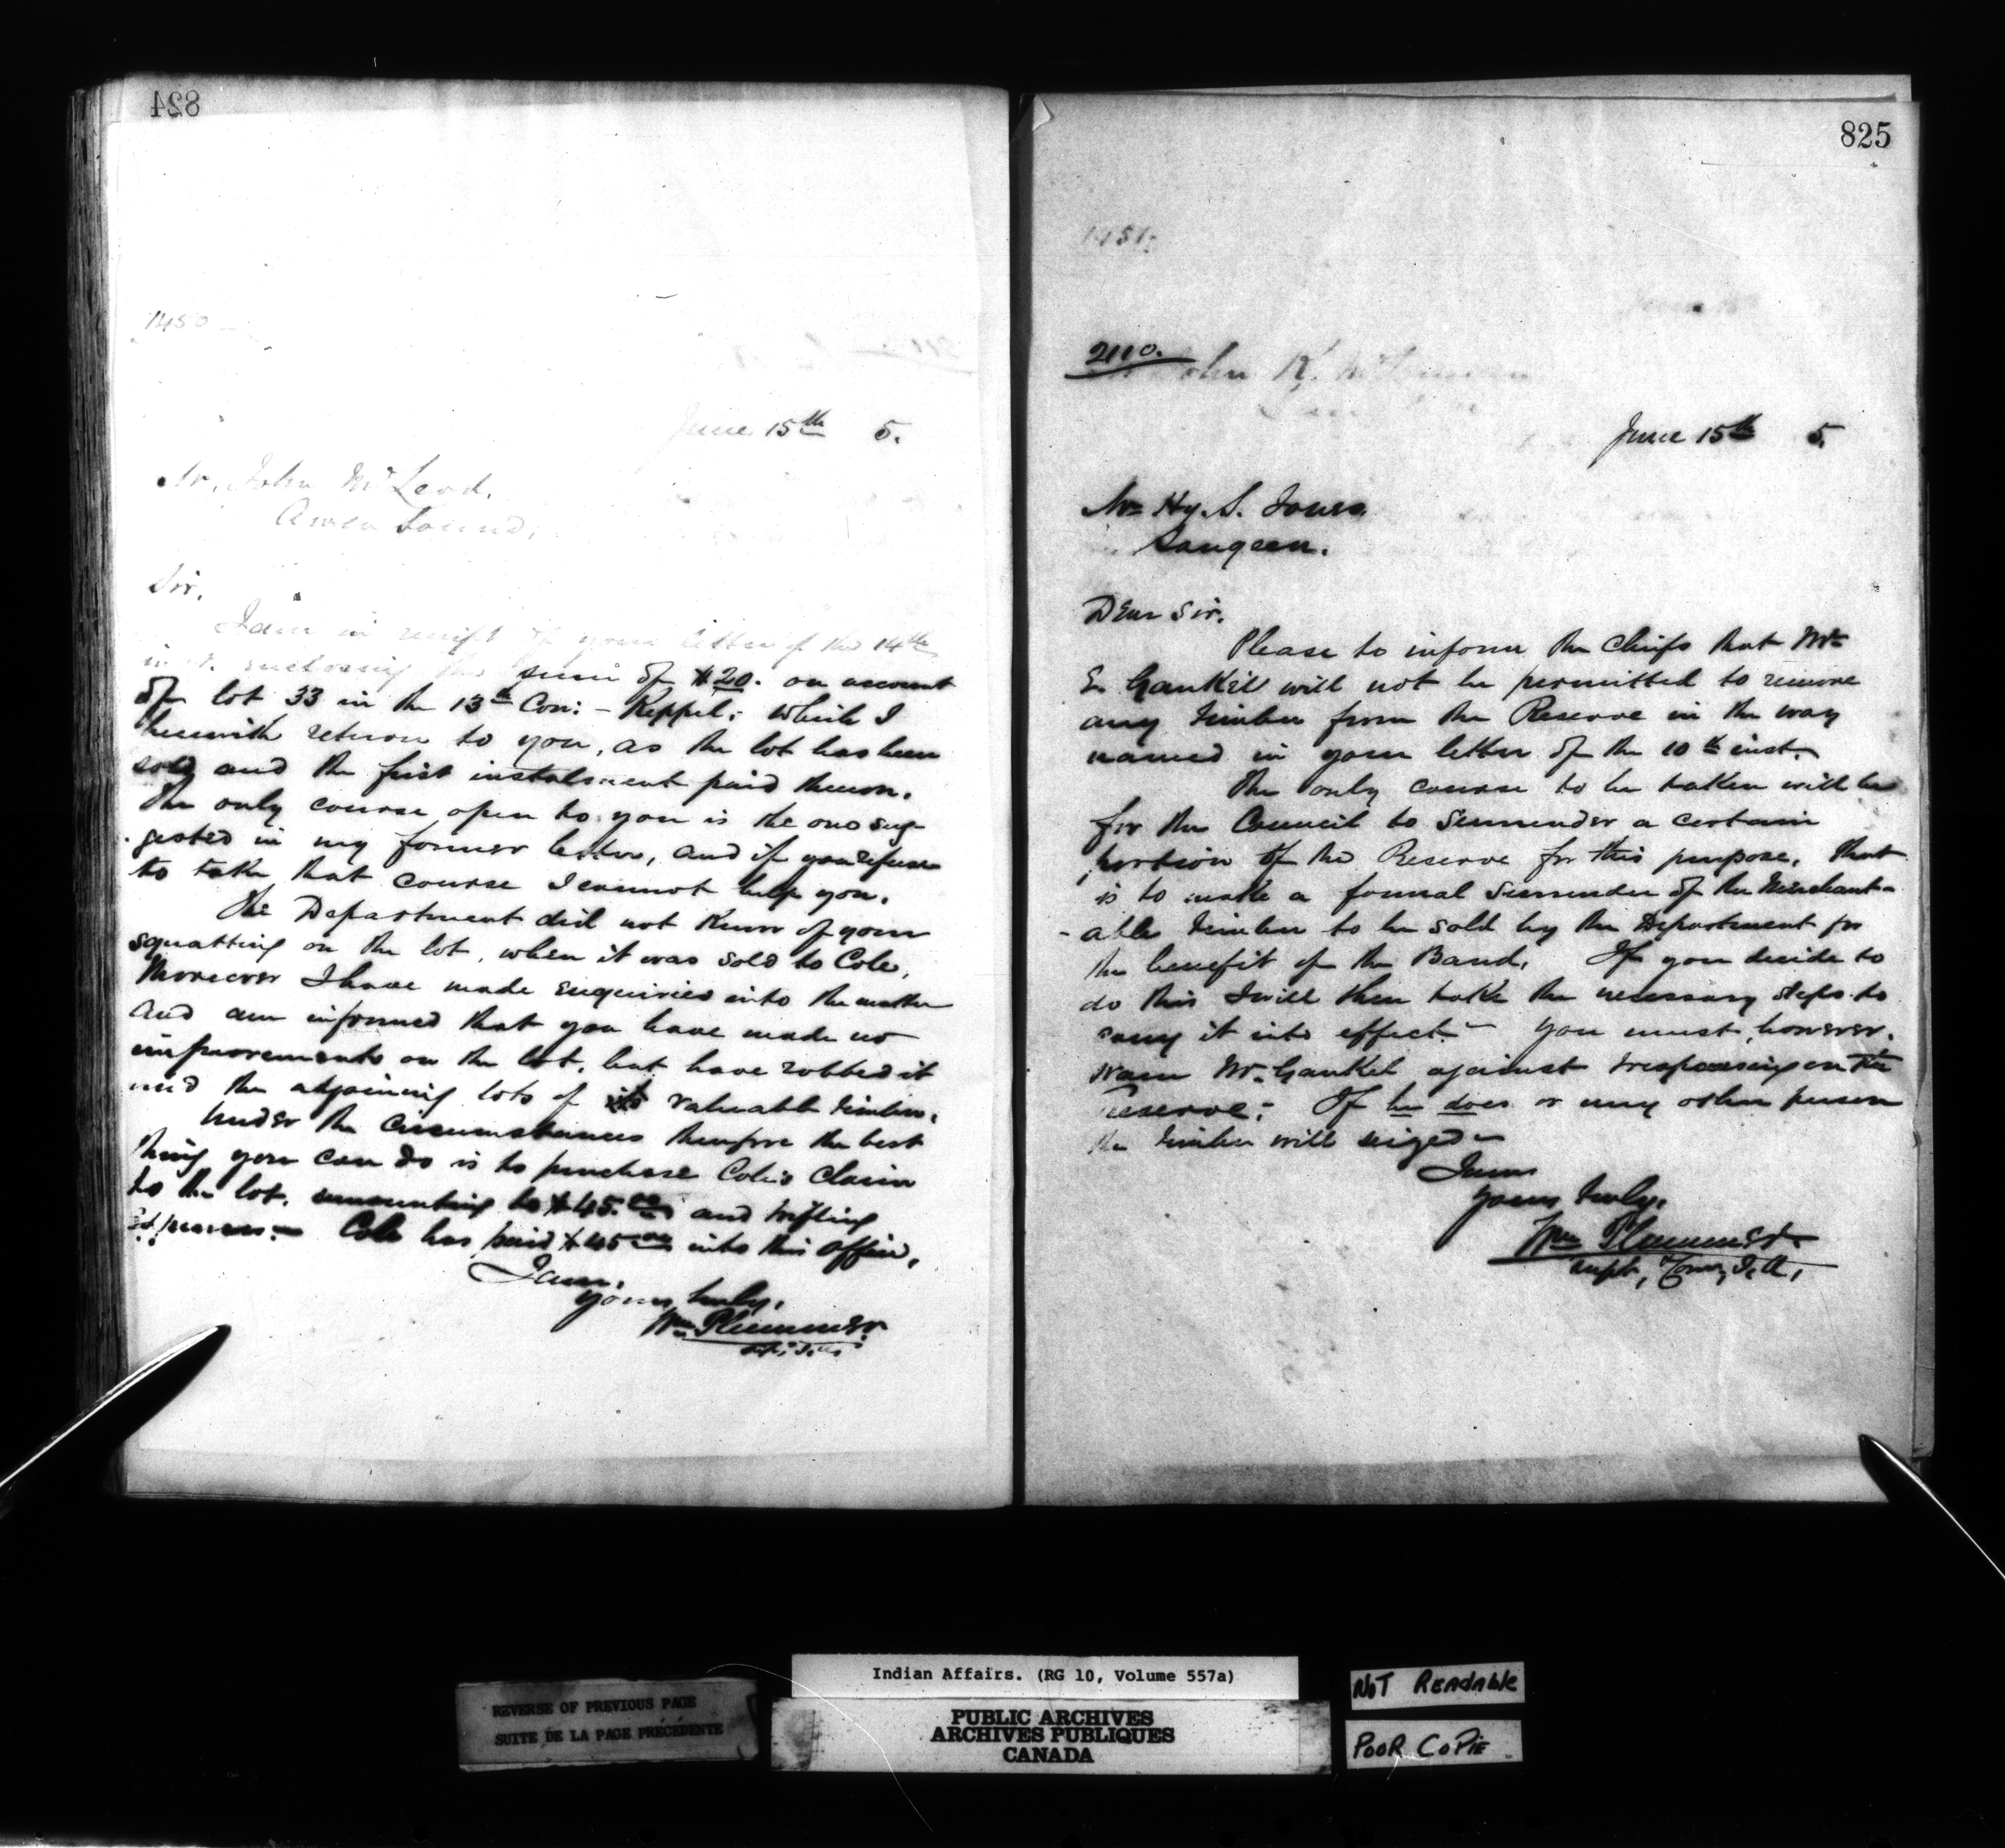 824
1450
June 15th 5.
Mr. John McLeod.
Owen Sound.
Sir.
I am in receipt of your letter of the 14th
inst. enclosing the sum of $20. on account
of lot 33 in the 13th Con: - Keppel; which I
herewith return to you, as the lot has been
sold and the first instalment paid thereon.
The only course open to you is the one sug-
gested in my former letter, and if you refuse
to take that course I cannot help you.
The Department did not know of your
squatting on the lot, when it was sold to Cole,
Moreover I have made enquiries into the matter
and am informed that you have made no
improvements on the lot, but have robbed it
and the adjoining lots of its valuable timber.
Under the circumstances therefore the best
thing you can do is to purchase Cole's Claim
to the lot, amounting to $45.00 and trifling
expenses. - Cole has paid $45.00 into this office,
I am,
yours truly,
Wm Plummer.
825
1451.
2110.
John R.
June 15th 5.
Mr Hy. S. Jones.
Saugeen.
Dear Sir.
Please to inform the Chiefs that Mr
E. Gankel will not be permitted to remove
any timber from the Reserve in the way
named in your letter of the 10th inst.
The only course to be taken will be
for the Council to Surrender a certain
portion of the Reserve for this purpose, that
is to make a formal Surrender of the Merchant-
-able timber to be sold by the Department for
the benefit of the Band. If you decide to
do this I will then take the necessary steps to
carry it into effect. - You must, however.
warn Mr. Gankel against trespassing on the
Reserve; If he does or any other person
the timber will seized -
I am
yours truly.
Wm Plummer
Supt, Comr, I. A,
REVERSE OF PREVIOUS PAGE
SUITE DE LA PAGE PRÉCÉDENTE
Indian Affairs. (RG 10, Volume 557a)
PUBLIC ARCHIVES
ARCHIVES PUBLIQUES
CANADA
NOT READABLE
POOR COPIE